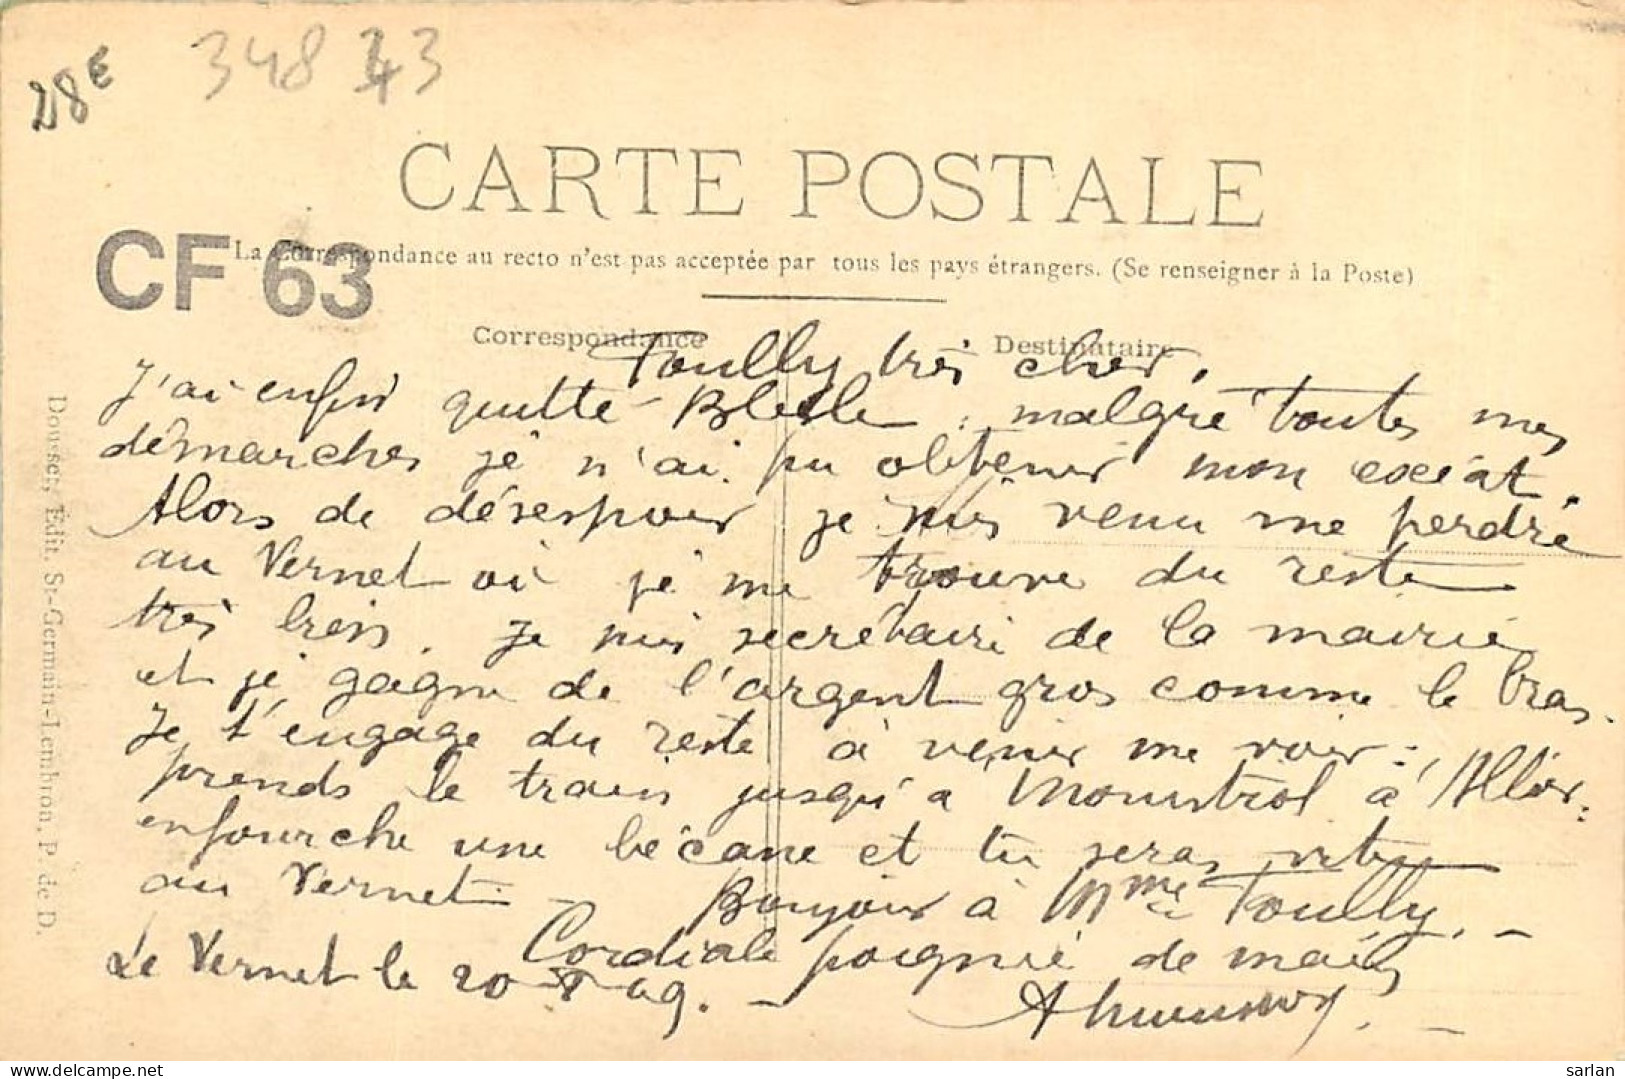 28€ 348 43
CARTE POSTALE
CF 63
La Correspondance au recto n'est pas acceptée par tous les pays étrangers. (Se renseigner à la Poste)
Correspondance
Destinataire
Foully très cher,
J'ai enfin quitté Blesle, malgré toutes mes
démarches je n'ai pu obtenir mon exeat.
Alors de désespoir je suis venu me perdre
au Vernet où je me trouve du reste
très bien. Je suis secrétaire de la mairie
et je gagne de l'argent gros comme le bras.
Je t'engage du reste à venir me voir :
prends le train jusqu'à Monistrol d'Allier.
enfourche une bécane et tu seras vite
au Vernet. Bonjour à Mme Foully. -
Cordiale poignée de mains
Le Vernet le 20 - 09. -
Dousset, Edit. St-Germain-Lembron, P. de D.
delcampe.net
sarlan